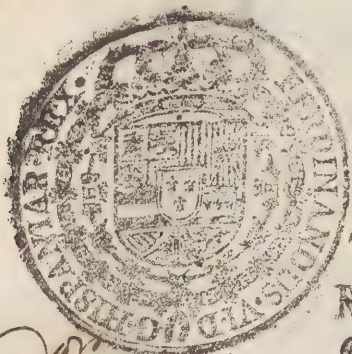 FERDINANDUS·VI·D·G·HISPANIAR·REX·
R
Don